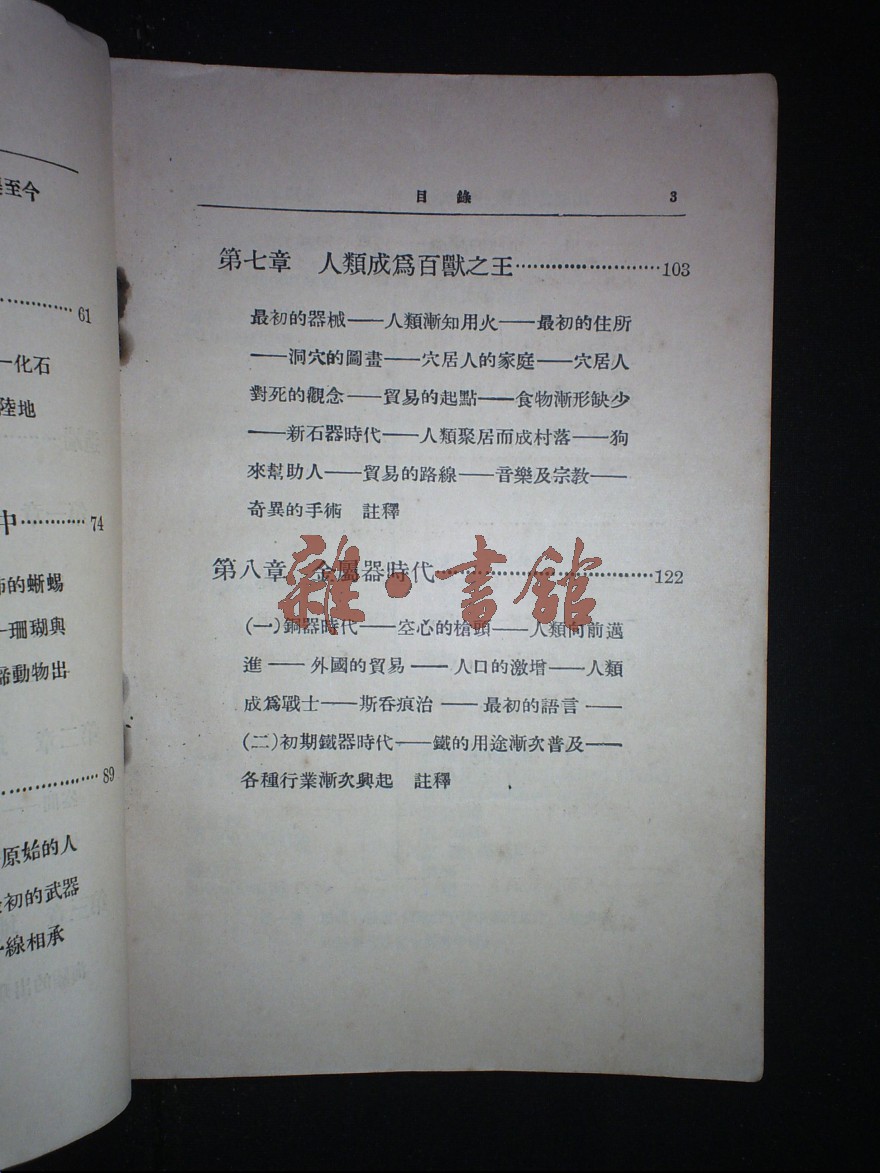 是至今
61
一化石
陸地
中 74
怖的蜥蜴
珊瑚與
蹄動物出
89
原始的人
最初的武器
一線相承
目錄 3
第七章 人類成爲百獸之王 103
最初的器械——人類漸知用火——最初的住所
——洞穴的圖畫——穴居人的家庭——穴居人
對死的觀念——貿易的起點——食物漸形缺少
——新石器時代——人類聚居而成村落——狗
來幫助人——貿易的路線——音樂及宗教——
奇異的手術 註釋
第八章 金屬器時代 122
(一)銅器時代——空心的槍頭——人類向前邁
進——外國的貿易——人口的激增——人類
成爲戰士——斯吞痕治——最初的語言——
(二)初期鐵器時代——鐵的用途漸次普及——
各種行業漸次興起 註釋
雜·書館